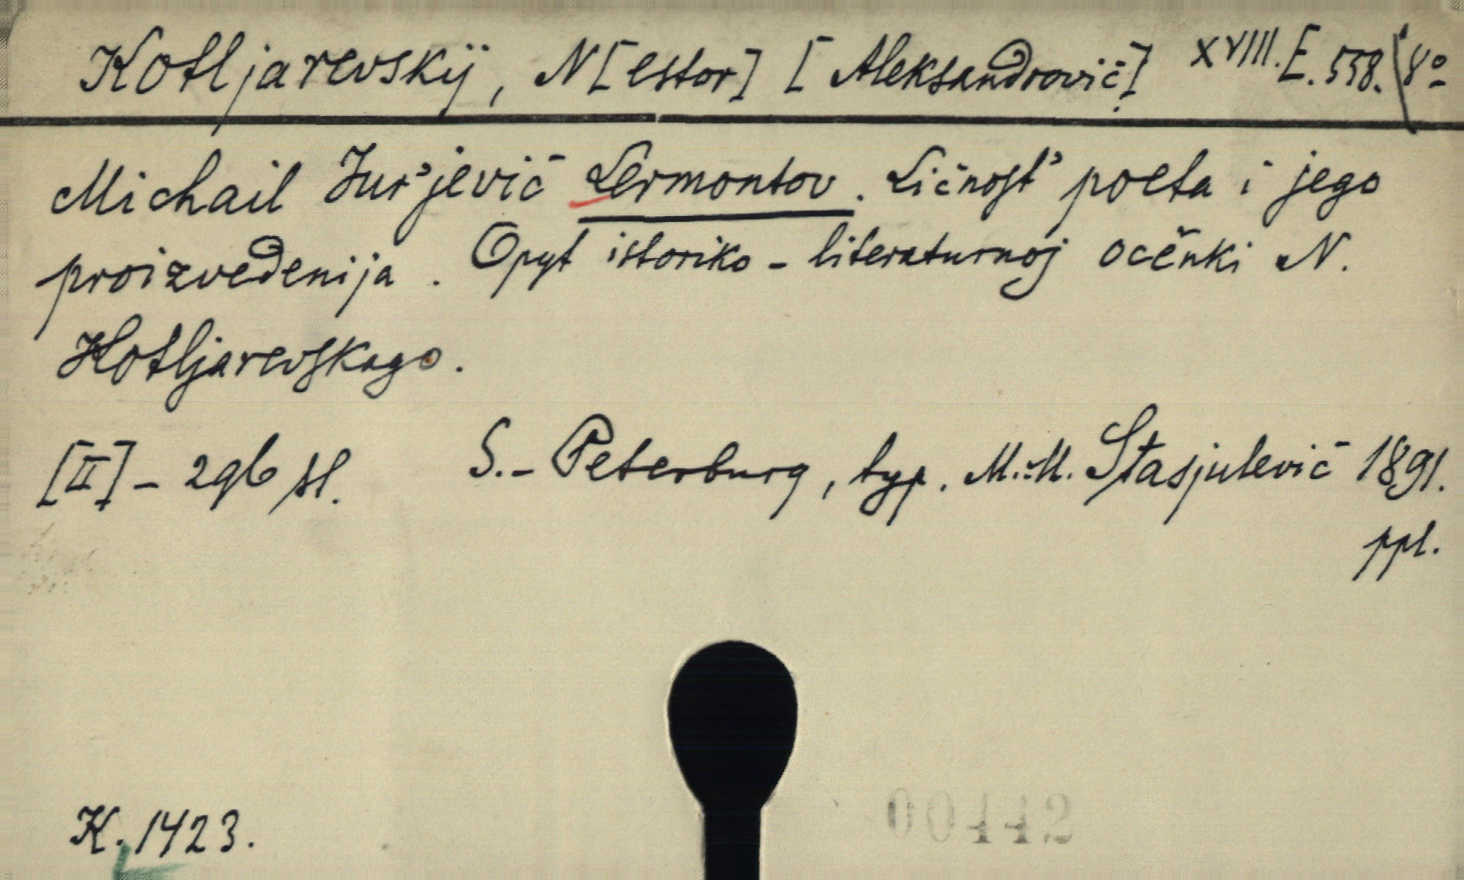 Kotljarevskÿ, N[estor] [Aleksandrovič] XVIII. E. 558. 8º
Michail Jur'jevič Lermontov. Ličnost' poeta i jego
proizvedenija. Opyt istoriko-literaturnoj ocěnki N.
Kotljarevskago.
[II] - 296 sl. S.-Peterburg, typ. M.M. Stasjulevič 1891.
ppl.
K. 1423.
00442